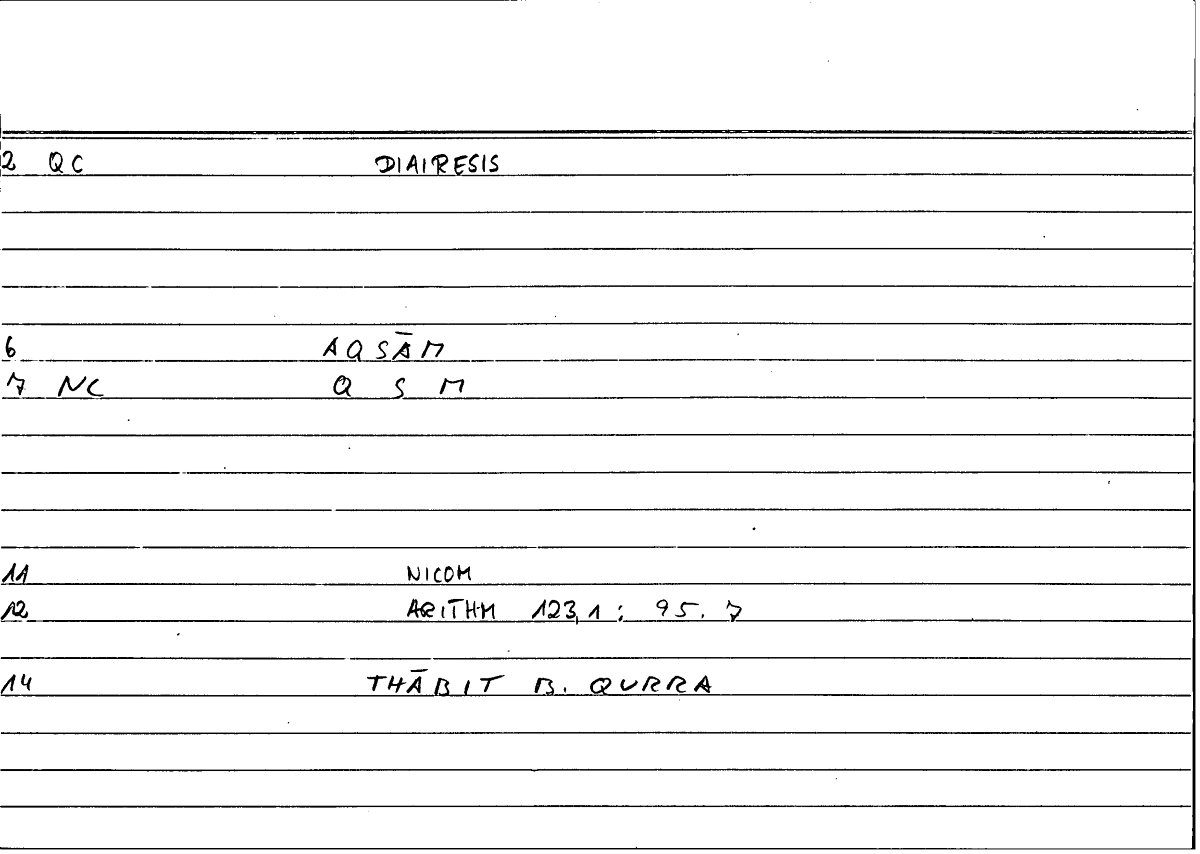 2 QC DIAIRESIS
6 AQSĀM
7 NC Q S M
11 NICOM
12 ARITHM 123,1 : 95. 7
14 THĀBIT B. QURRA